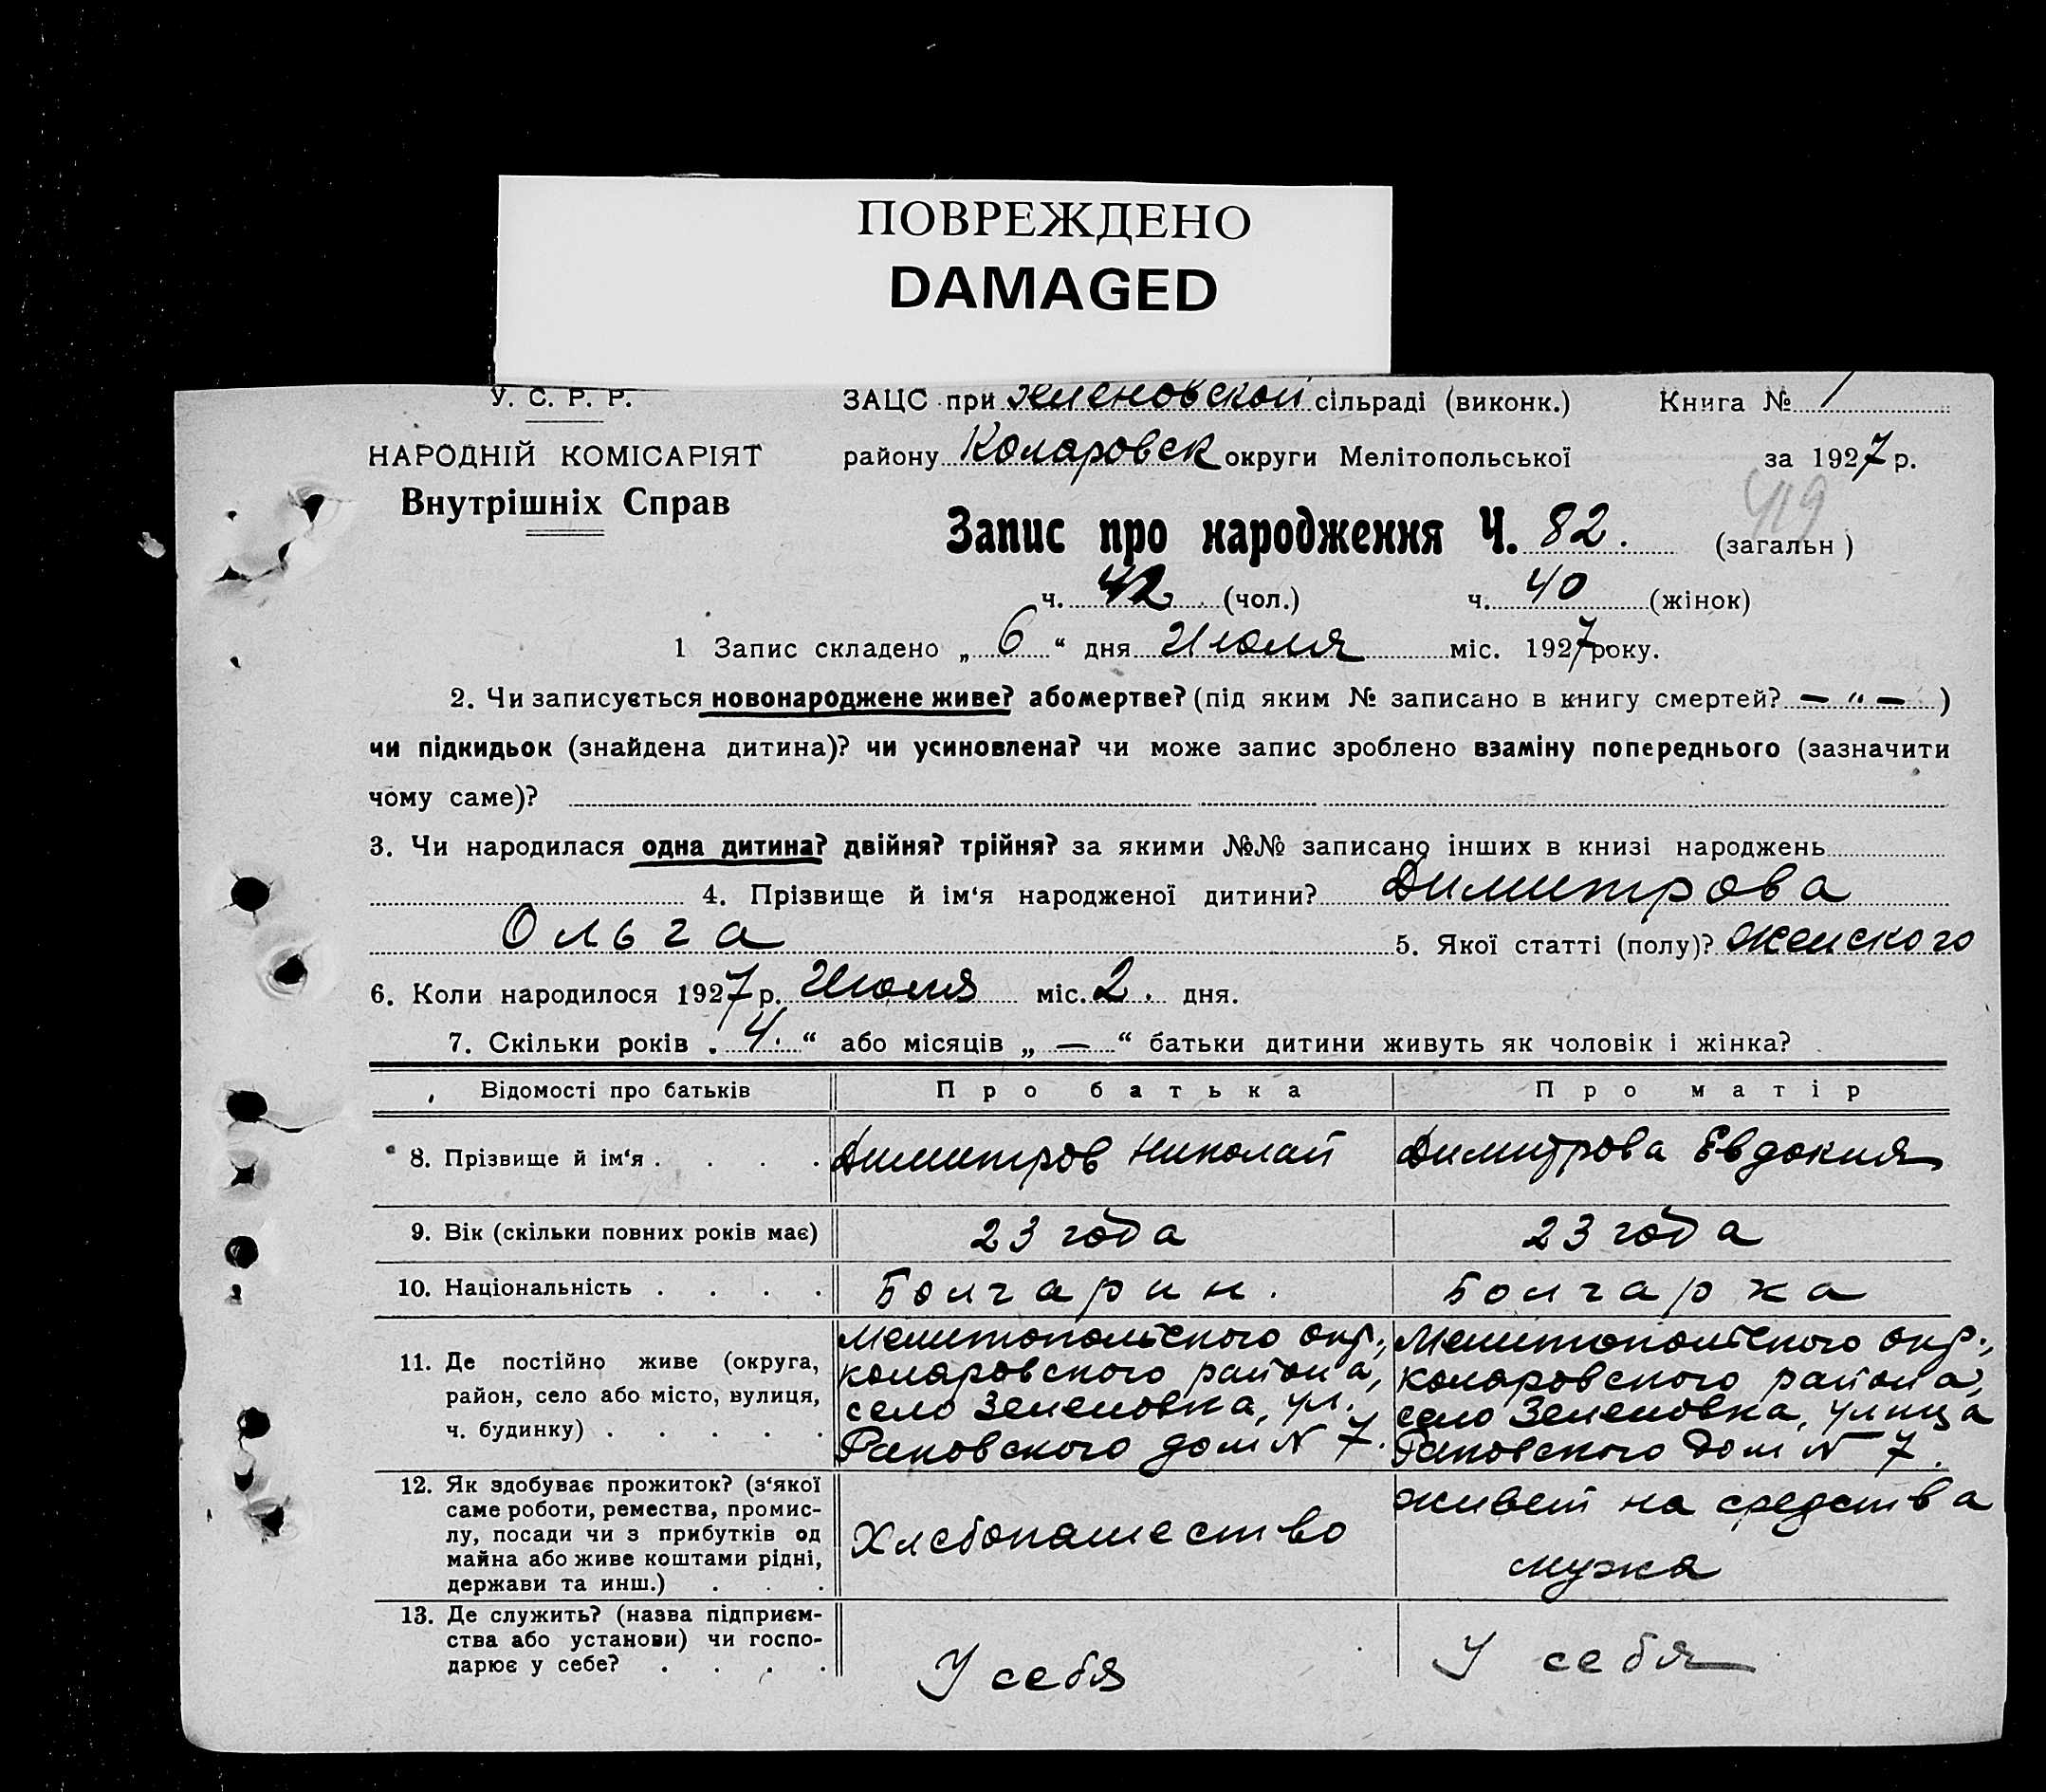 ПОВРЕЖДЕНО
DAMAGED
У. С. Р. Р.
НАРОДНІЙ КОМІСАРІЯТ
Внутрішніх Справ
ЗАЦС при Зеленовской сільраді (виконк.) Книга № 1
району Коларовск округи Мелітопольської за 1927 р.
419
Запис про народження Ч. 82. (загальн)
ч. 42 (чол.) ч. 40 (жінок)
1 Запис складено „ 6 “ дня Июля міс. 1927 року.
2. Чи записується новонароджене живе? або мертве? (під яким № записано в книгу смертей? — „ — )
чи підкидьок (знайдена дитина)? чи усиновлена? чи може запис зроблено взаміну попереднього (зазначити
чому саме)?
3. Чи народилася одна дитина? двійня? трійня? за якими №№ записано інших в книзі народжень
4. Прізвище й ім‘я народженої дитини? Димитрова
Ольга 5. Якої статті (полу)? Женского
6. Коли народилося 1927 р. Июля міс. 2. дня.
7. Скільки років „ 4. “ або місяців „ — “ батьки дитини живуть як чоловік і жінка?
Відомості про батьків Про батька Про матір
8. Прізвище й ім‘я . . . . Димитров Николай Димитрова Евдокия
9. Вік (скільки повних років має) 23 года 23 года
10. Національність . . . . Болгарин. Болгарка
11. Де постійно живе (округа,
район, село або місто, вулиця,
ч. будинку) . . . . .
Мелитопольского окр.,
коларовского района,
село Зеленовка, ул.
Раковского дом N 7.
Мелитопольского окр.,
коларовского района,
село Зеленовка, улица
Раковского дом N 7.
12. Як здобуває прожиток? (з‘якої
саме роботи, ремества, промис-
лу, посади чи з прибутків од
майна або живе коштами рідні,
держави та инш.) . . .
Хлебопашество
живет на средства
мужа
13. Де служить? (назва підприєм-
ства або установи) чи госпо-
дарює у себе? . . . .
У себя
У себя